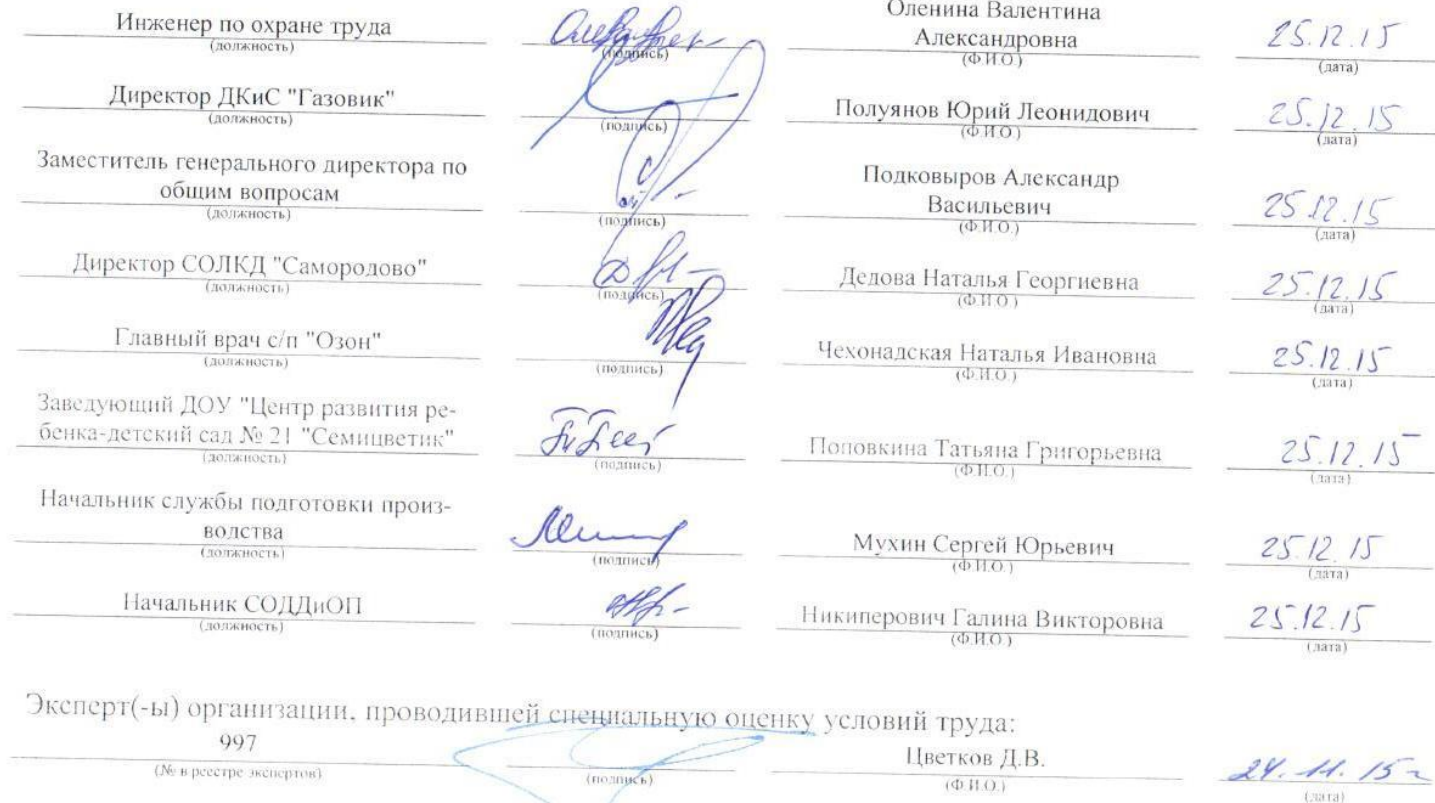 Инженер по охране труда
(должность)
(подпись)
Оленина Валентина
Александровна
(Ф.И.О.)
25.12.15
(дата)
Директор ДКиС "Газовик"
(должность)
(подпись)
Полуянов Юрий Леонидович
(Ф.И.О.)
25.12.15
(дата)
Заместитель генерального директора по
общим вопросам
(должность)
(подпись)
Подковыров Александр
Васильевич
(Ф.И.О.)
25.12.15
(дата)
Директор СОЛКД "Самородово"
(должность)
(подпись)
Дедова Наталья Георгиевна
(Ф.И.О.)
25.12.15
(дата)
Главный врач с/п "Озон"
(должность)
(подпись)
Чехонадская Наталья Ивановна
(Ф.И.О.)
25.12.15
(дата)
Заведующий ДОУ "Центр развития ре-
бенка-детский сад № 21 "Семицветик"
(должность)
(подпись)
Поповкина Татьяна Григорьевна
(Ф.И.О.)
25.12.15
(дата)
Начальник службы подготовки произ-
водства
(должность)
(подпись)
Мухин Сергей Юрьевич
(Ф.И.О.)
25.12.15
(дата)
Начальник СОДДиОП
(должность)
(подпись)
Никиперович Галина Викторовна
(Ф.И.О.)
25.12.15
(дата)
Эксперт(-ы) организации, проводившей специальную оценку условий труда:
997
(№ в реестре экспертов)
(подпись)
Цветков Д.В.
(Ф.И.О.)
24.11.15г
(дата)